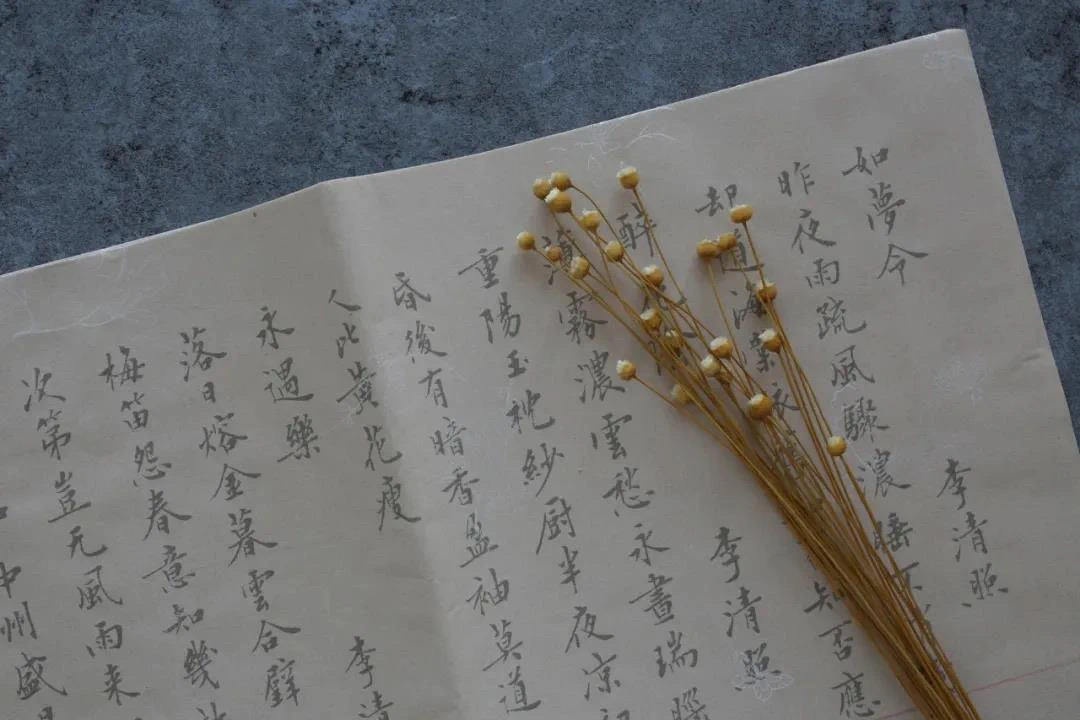 如夢令
李清照
昨夜雨疏風驟濃睡不
知否應
却道海棠依
李清照
醉花
薄霧濃雲愁永晝瑞腦
重陽玉枕紗厨半夜凉初
昏後有暗香盈袖莫道
人比黄花瘦
永遇樂
李清
落日熔金暮雲合璧
梅笛怨春意知幾
次第豈无風雨来
中州盛